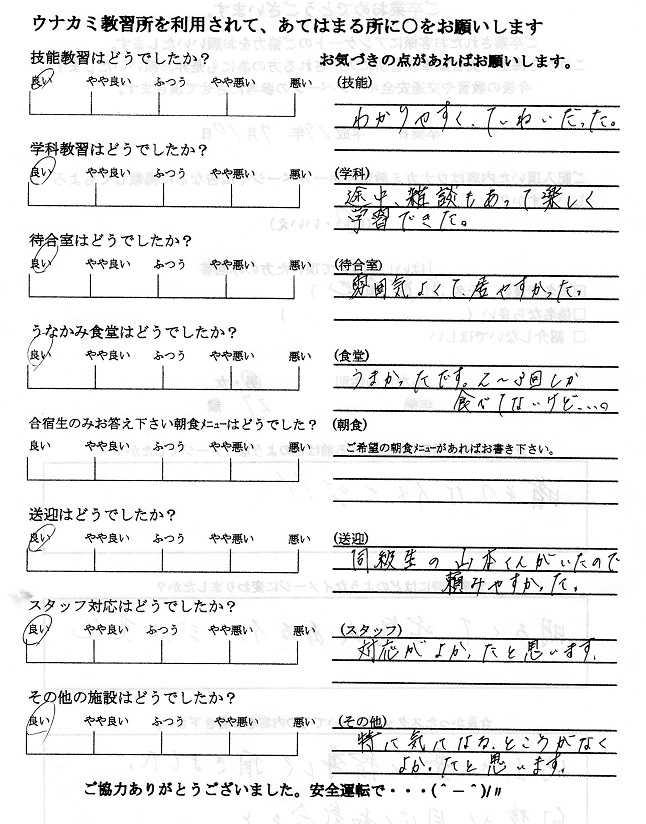 ウナカミ教習所を利用されて、あてはまる所に○をお願いします
技能教習はどうでしたか？
お気づきの点があればお願いします。
良い やや良い ふつう やや悪い 悪い
(技能)
わかりやすく、ていねいだった。
学科教習はどうでしたか？
良い やや良い ふつう やや悪い 悪い
(学科)
途中、雑談もあって楽しく
学習できた。
待合室はどうでしたか？
良い やや良い ふつう やや悪い 悪い
(待合室)
雰囲気よくて、居やすかった。
うなかみ食堂はどうでしたか？
良い やや良い ふつう やや悪い 悪い
(食堂)
うまかったです。2～3回しか
食べてないけど…の
合宿生のみお答え下さい朝食ﾒﾆｭｰはどうでしたか？
良い やや良い ふつう やや悪い 悪い
(朝食)
ご希望の朝食ﾒﾆｭｰがあればお書き下さい。
送迎はどうでしたか？
良い やや良い ふつう やや悪い 悪い
(送迎)
同級生の山本くんがいたので
頼みやすかった。
スタッフ対応はどうでしたか？
良い やや良い ふつう やや悪い 悪い
(スタッフ)
対応がよかったと思います。
その他の施設はどうでしたか？
良い やや良い ふつう やや悪い 悪い
(その他)
特に気になる、ところがなく
よかったと思います。
ご協力ありがとうございました。安全運転で・・・(＾－＾)/〃